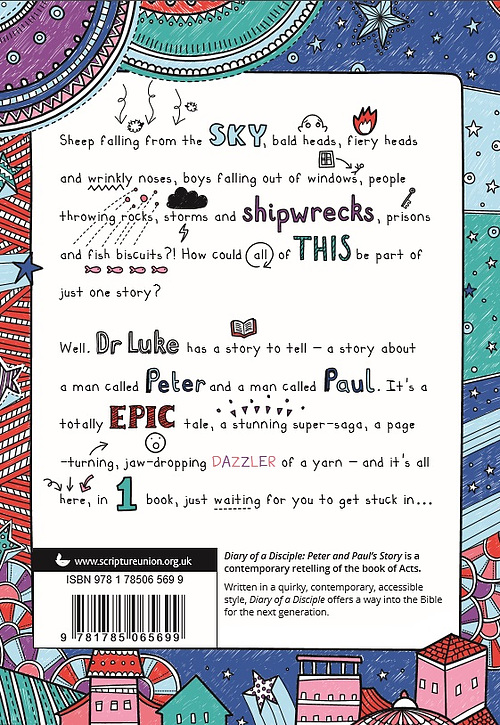 Sheep falling from the SKY, bald heads, fiery heads
and wrinkly noses, boys falling out of windows, people
throwing rocks, storms and shipwrecks, prisons
and fish biscuits?! How could all of THIS be part of
just one story?
Well. Dr Luke has a story to tell – a story about
a man called Peter and a man called Paul. It's a
totally EPIC tale, a stunning super-saga, a page
-turning, jaw-dropping DAZZLER of a yarn – and it's all
here, in 1 book, just waiting for you to get stuck in...
www.scriptureunion.org.uk
ISBN 978 1 78506 569 9
9 781785 065699
Diary of a Disciple: Peter and Paul's Story is a
contemporary retelling of the book of Acts.
Written in a quirky, contemporary, accessible
style, Diary of a Disciple offers a way into the Bible
for the next generation.